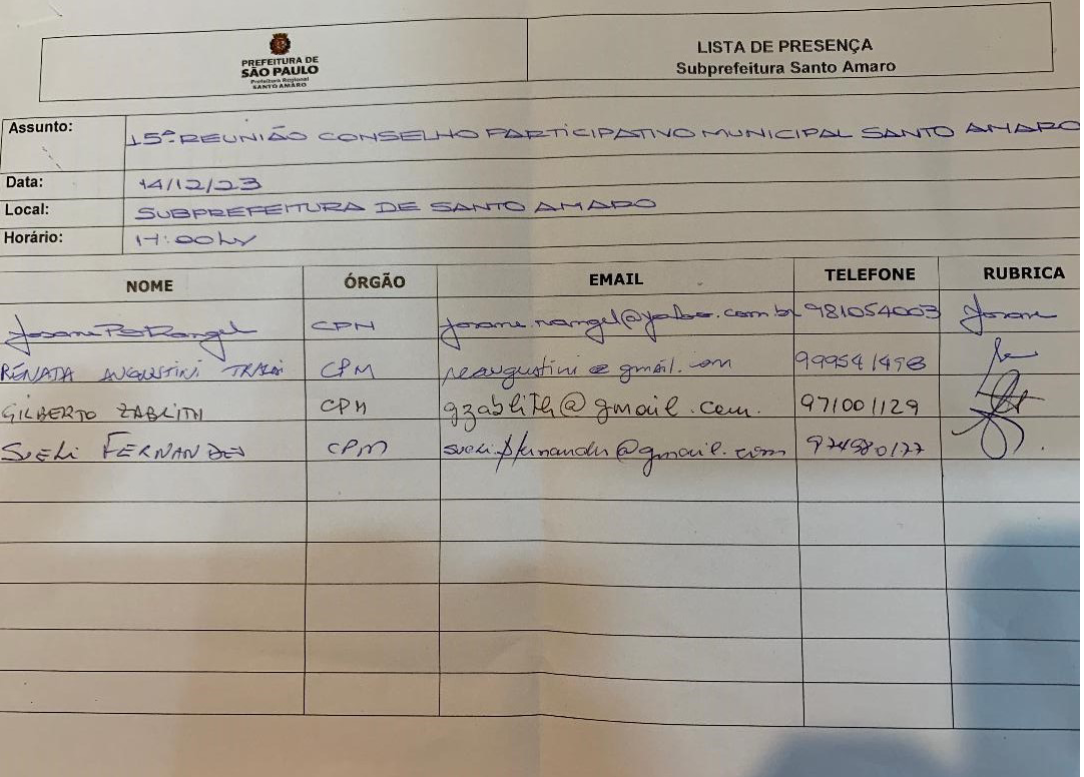 PREFEITURA DE
SÃO PAULO
Prefeitura Regional
SANTO AMARO
LISTA DE PRESENÇA
Subprefeitura Santo Amaro
Assunto: 15ª REUNIÃO CONSELHO PARTICIPATIVO MUNICIPAL SANTO AMARO
Data: 14/12/23
Local: SUBPREFEITURA DE SANTO AMARO
Horário:
NOME ÓRGÃO EMAIL TELEFONE RUBRICA
Rangel CPM josane.rangel@yahoo.com.br 981054003 Josane
RENATA AUGUSTINI CPM reaugustini@gmail.com
GILBERTO ZABLITH CPM gzablith@gmail.com. 971001129
SUELI FERNANDES CPM